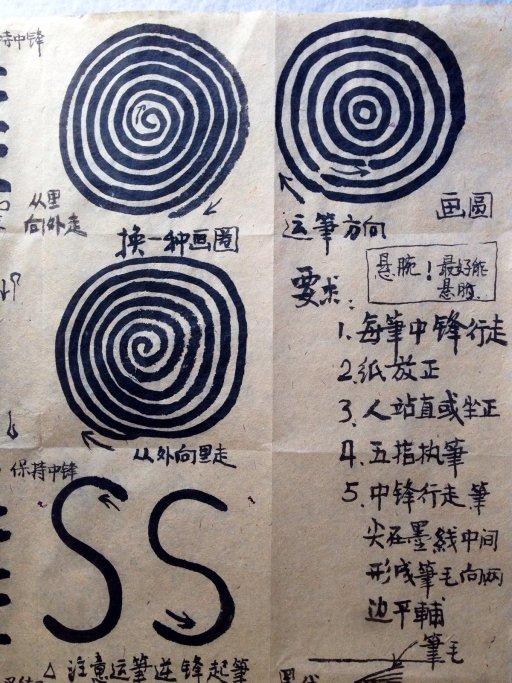 持中锋
从里
向外走
换一种画圈
从外向里走
保持中锋
SS
注意运筆逆锋起筆
运筆方向
画圆
悬腕！最好能
悬肘
要求：
1、每筆中锋行走
2、纸放正
3、人站直或坐正
4、五指执筆
5、中锋行走筆
尖在墨线中间
形成筆毛向两
边平輔
筆毛